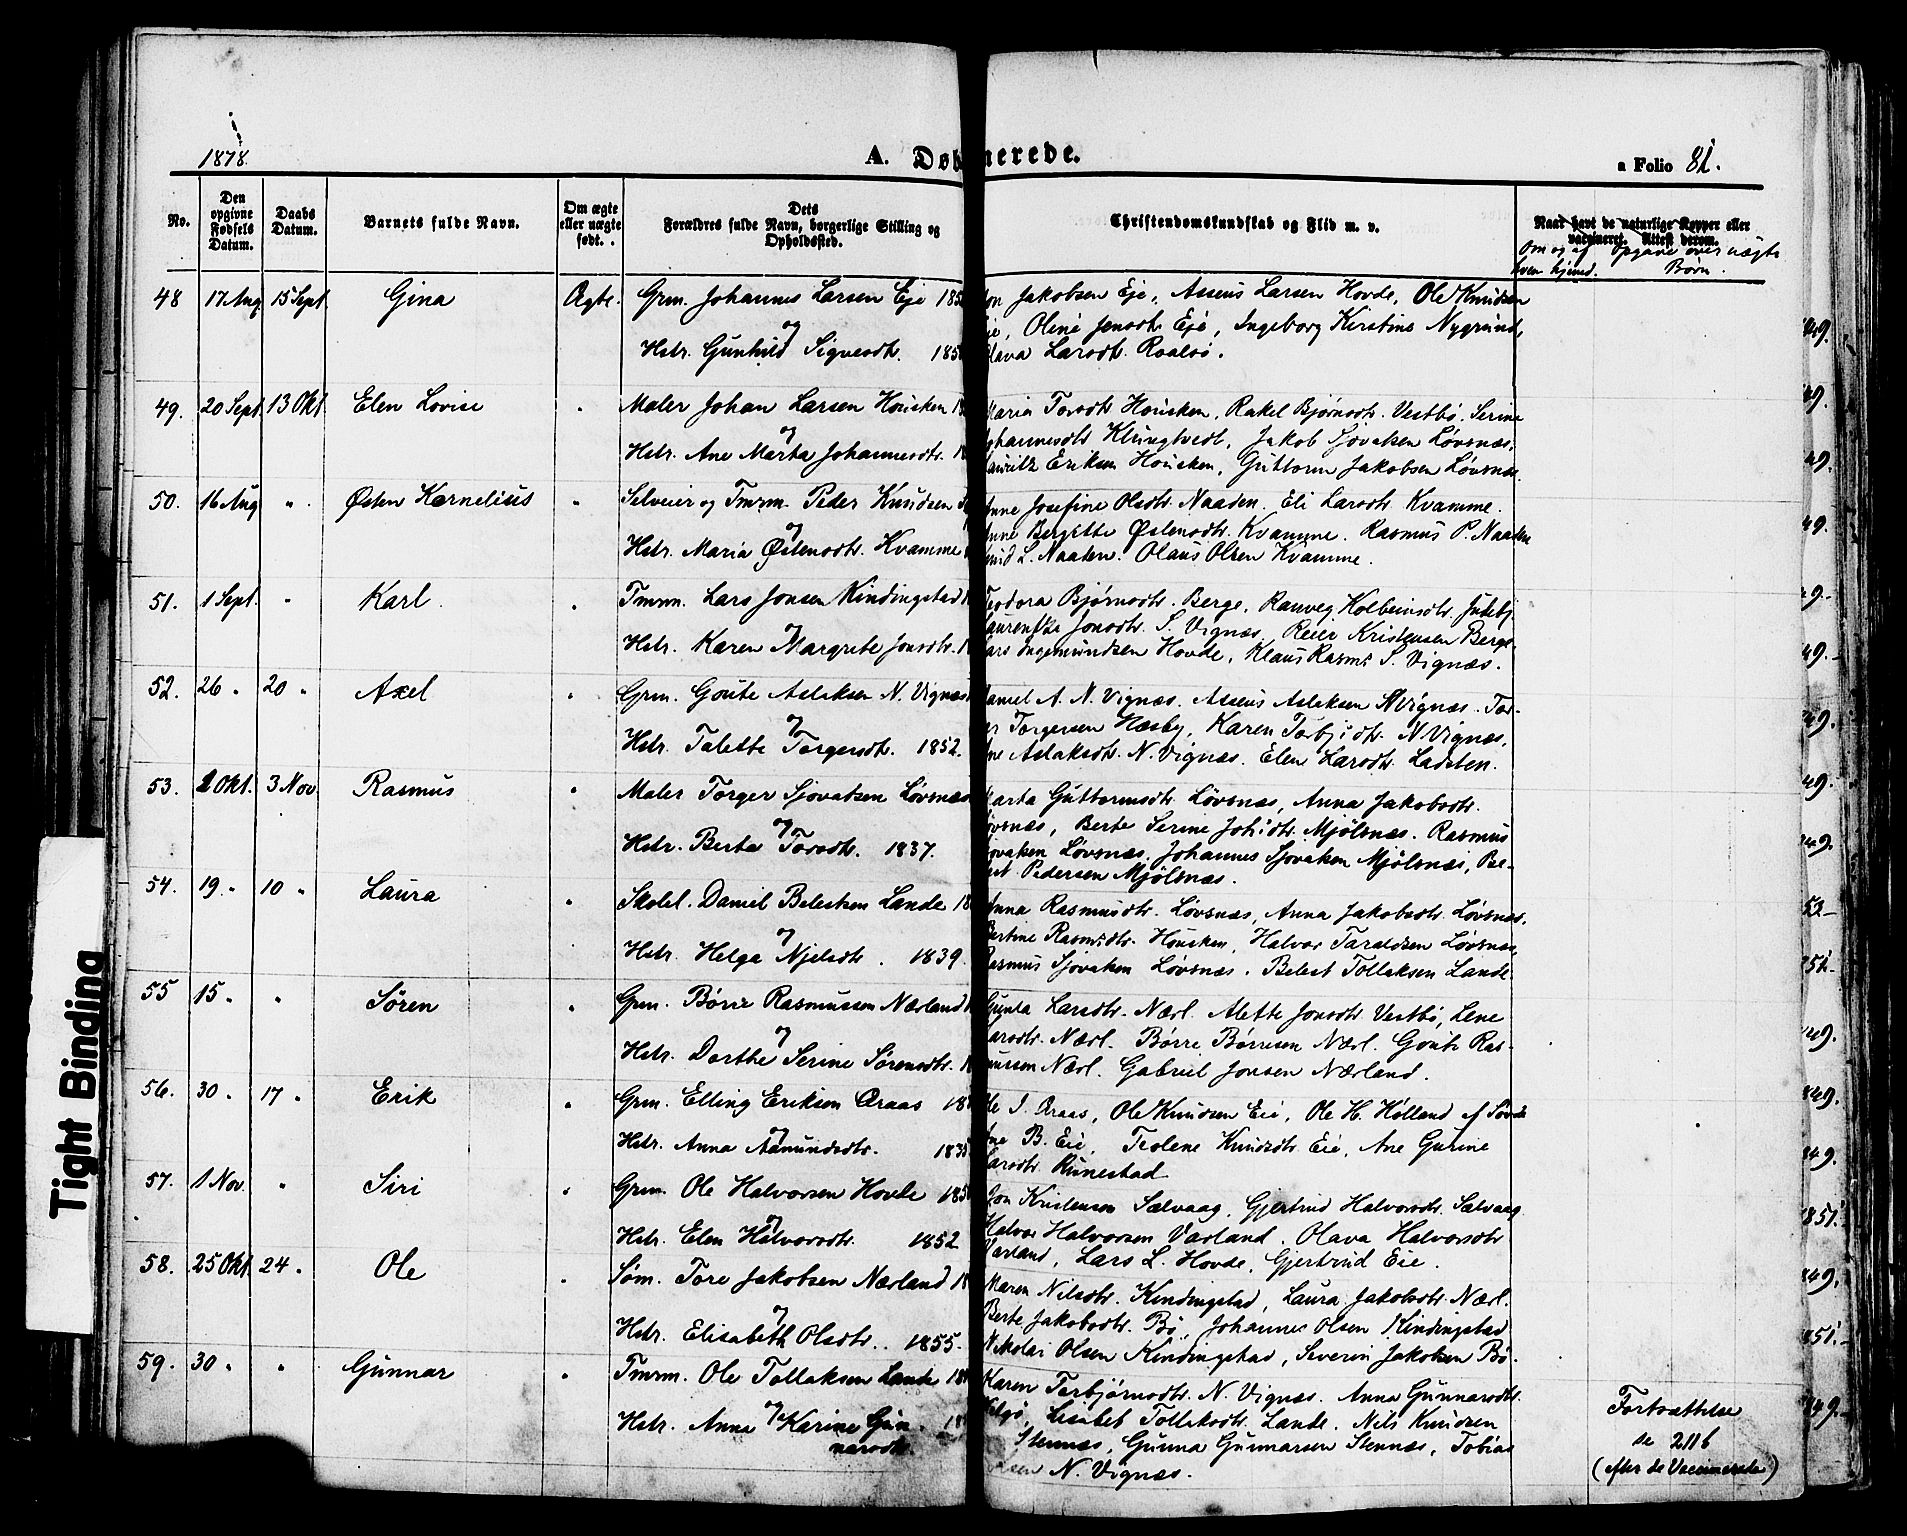 1878.
A. Døb nerede.
a Folio 81.
No.
Den opgivne Fødsels Datum.
Daabs Datum.
Barnets fulde Navn.
Om ægte eller uægte født.
Dets Forældres fulde Navn, borgerlige Stilling og Opholdssted.
Christendomskundskab og Flid m. v.
Naar havt de naturlige Kopper eller vaccineret. Attest derom.
Om og af hven hjemd. Opgave over uægte Børn.
48 17 Aug 15 Sept. Gina Ægte. Grm. Johannes Larsen Eje 185
og
Hstr. Gunhild Sigvesdtr. 185
on Jakobsen Eje, Asseus Larsen Hovde, Ole Knudsen
je, Oline Jensdtr. Eje, Ingeborg Kirstine Nygrund,
lava Larsdtr. Roalsø.
49. 20 Sept. 13 Okt. Elen Lovise " Maler Johan Larsen Housken 1
og
Hstr. Ane Marta Johannesdtr. 1
Maria Torsdtr Housken, Rakel Bjørnsdtr. Vestbø, Serine
ohannesdtr Klungtvedt, Jakob Sjovatsen Løvsnæs,
auritz Eriksen Housken, Guttorm Jakobsen Løvsnæs.
50. 16 Aug " Østen Kornelius " Selveier og Tmrm. Peder Knudsen
og
Hstr. Maria Østensdtr. Kvamme
nne Josefine Olsdtr. Naaden. Eli Larsdtr. Kvamme.
nne Bergitte Østensdtr. Kvamme. Rasmus P. Naaden
nud L. Naaden. Olaus Olsen Kvamme.
51. 1 Sept. " Karl. " Tmrm. Lars Jonsen Kindingstad
og
Hstr. Karen Margrete Jonsdtr. 1
Teodora Bjørnsdtr. Berge, Ranveg Kolbeinsdtr. Judebj.
aurentse Jonsdtr. S. Vignæs, Reier Kristensen Berge
ars Ingemundsen Hovde, Klaus Rasm: S. Vignæs.
52. 26 " 20 " Axel " Grm. Goute Aslaksen N. Vignæs
og
Hstr. Talette Torgersdtr. 1852.
Daniel A. N. Vignæs. Asseus Aslaksen N. Vignæs. Tor-
er Torgersen Næsby, Karen Torbj:dtr. N. Vignæs,
ne Aslaksdtr. N. Vignæs. Elen Larsdtr. Ladsten.
53. 2 Okt. 3 Nov. Rasmus " Maler Torger Sjovatsen Løvsnæs
og
Hstr. Berta Torsdtr. 1837.
Marta Guttormsdtr. Løvsnæs, Anna Jakobsdtr.
øvsnæs, Berte Serine Joh:dtr. Mjølsnæs. Rasmus
jovatsen Løvsnæs. Johannes Sjovatsen Mjølsnæs, Be-
nt Pedersen Mjølsnæs.
54. 19. " 10 " Laura " Skolel. Daniel Belestsen Lande 18
og
Hstr. Helga Njelsdtr. 1839.
Anna Rasmusdtr. Løvsnæs, Anna Jakobsdtr. Løvsnæs,
Bertine Rasm:dtr. Housken, Halvor Taraldsen Løvsnæs,
Rasmus Sjovatsen Løvsnæs. Belest Tollaksen Lande
55 15 " " Søren " Grm. Børre Rasmussen Nærland
og
Hstr. Dorthe Serine Sørensdtr. 1
Gunla Larsdtr. Nærl. Alette Jonsdtr Vestbø, Lene
arsdtr. Nærl. Børre Børresen Nærl. Goute Ras-
ussen Nærl. Gabriel Jonsen Nærland.
56. 30 " 17 " Erik " Grm. Elling Eriksen Araas 18
og
Hstr. Anna Asmundsdtr. 1835
le I. Araas, Ole Knudsen Eie, Ole H. Hølland af Sovde
ne B. Eie, Teolene Knudsdtr. Eie, Ane Gurine
arsdtr. Runestad
57. 1 Nov. " Siri " Grm. Ole Halvorsen Hovde 185
og
Hstr. Elen Halvorsdtr. 1852
Jon Kristensen Sælvaag, Gjertrud Halvorsdtr. Sælvaag
Halvor Halvorsen Varland. Olava Halvorsdtr
Varland, Lars L. Hovde, Gjertrud Eie.
58. 25 Okt 24 " Ole " Søm. Tore Jakobsen Nærland 18
og
Hstr. Elisabeth Olsdtr. 1855.
Maren Nilsdtr. Kindingstad, Laura Jakobsdtr. Nærl.
Berte Jakobsdtr. Bø, Johannes Olsen Kindingstad
Nikolai Olsen Kindingstad, Severin Jakobsen Bø.
59. 30 " " Gunnar " Tmrm. Ole Tollaksen Lande 18
og
Hstr. Anna Karine Gun- 18
narsdtr.
Karen Torbjørnsdtr. N. Vignæs. Anna Gunnarsdtr.
Helgø, Lisabet Tollaksdtr. Lande. Nils Knudsen
Stennæs, Gunna Gunnarsen Stennæs, Tobias
sen N. Vignæs.
Fortsættelse
se 211b
(efter de Vaccinerede)
Tight Binding